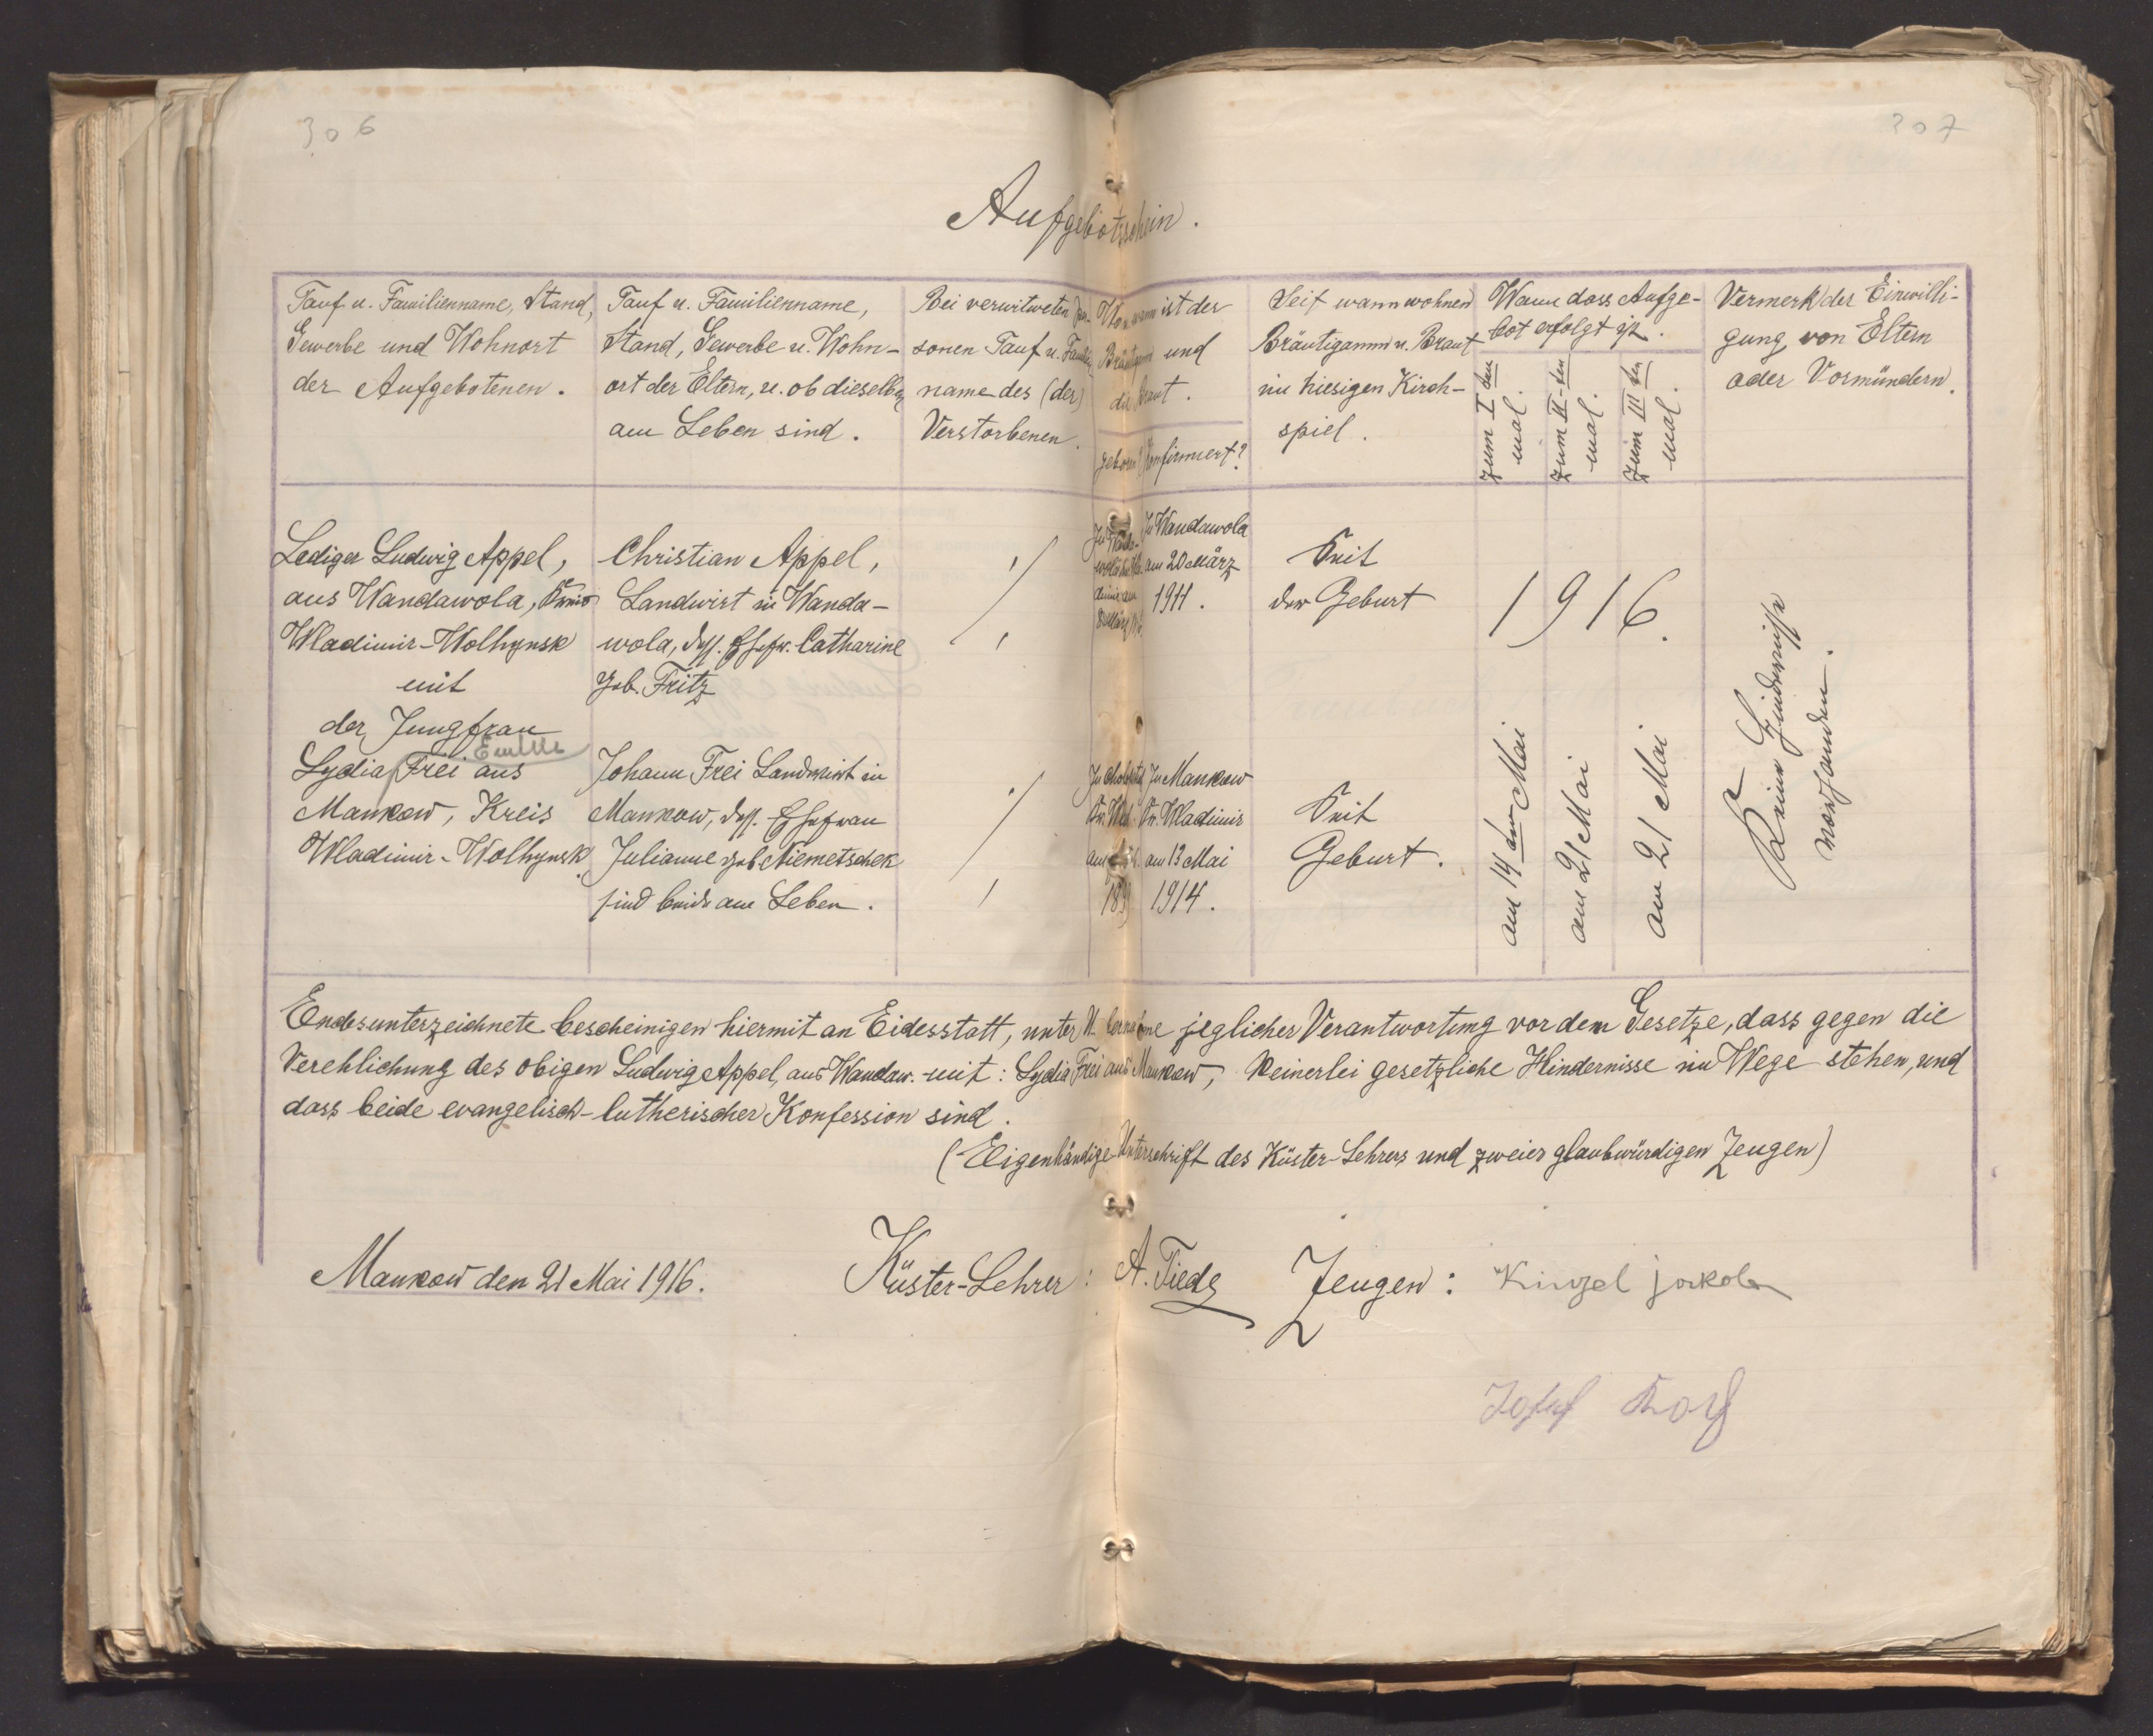 306
307
Aufgebotsschein.
Tauf u. Familienname, Stand,
Gewerbe und Wohnort
der Aufgebotenen.
Tauf u. Familienname,
Stand, Gewerbe u. Wohn-
ort der Eltern, u. ob dieselben
am Leben sind.
Bei verwitweten Per-
sonen Tauf u. Familien
name des (der)
Verstorbenen.
Wo u. wann ist der
Bräutigam und
die Braut.
geboren? Konfirmiert?
Seit wann wohnen
Bräutigamm u. Braut
im hiesigen Kirch-
spiel.
Wann dass Aufge-
bot erfolgt ist.
zum I ten
mal.
zum II-ten
mal.
zum III ten
mal.
Vermerk der Einwilli-
gung von Eltern
oder Vormündern.
Lediger Ludwig Appel,
aus Wandawola, Kreis
Wladimir-Wolhynsk
mit
der Jungfrau
Emilie
Lydia Frei aus
Mankow, Kreis
Wladimir-Wolhynsk.
Christian Appel,
Landwirt in Wanda-
wola, dess. Ehefr. Catharine
geb. Fritz
Johann Frei Landwirt in
Mankow, dess. Ehefrau
Julianne geb Niemetschek
sind beide am Leben.
In Wandawola
am 20 März
1911.
In Mankow
Kr. Wladimir
am 13 Mai
1914.
Seit
der Geburt
Seit
Geburt.
1916.
am 14 ten Mai
am 21 Mai
am 21 Mai
Keine Hindernisse
vorhanden.
Endesunterzeichnete bescheinigen hiermit an Eidesstatt, unter jeglicher Verantwortung vor dem Gesetze, dass gegen die
Verehlichung des obigen Ludwig Appel, aus Wandaw. mit: Lydia Frei aus Mankow, keinerlei gesetzliche Hindernisse im Wege stehen, und
dass beide evangelisch-lutherischer Konfession sind.
(Eigenhändige Unterschrift des Küster-Lehrers und zweier glaubwürdigen Zeugen)
Mankow den 21 Mai 1916.
Küster-Lehrer: A. Tiede
Zeugen: Kinzel jakob
Josef